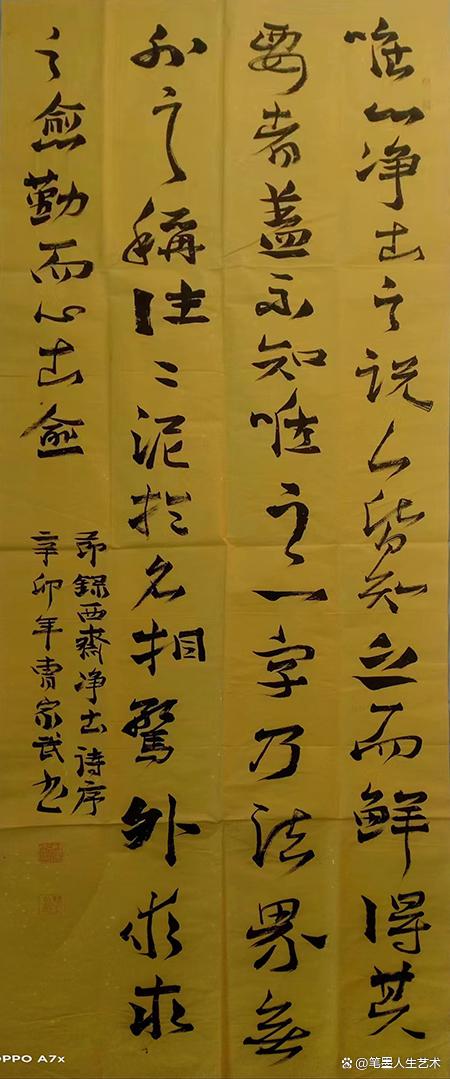 唯心净土之説人皆知之而鮮得其
要者盖不知唯之一字乃法界無
外之稱往々泥於名相騖外求求
之愈勤而心土愈
節録西齋净土詩序
辛卯年曹家武书
OPPO A7x
@笔墨人生艺术